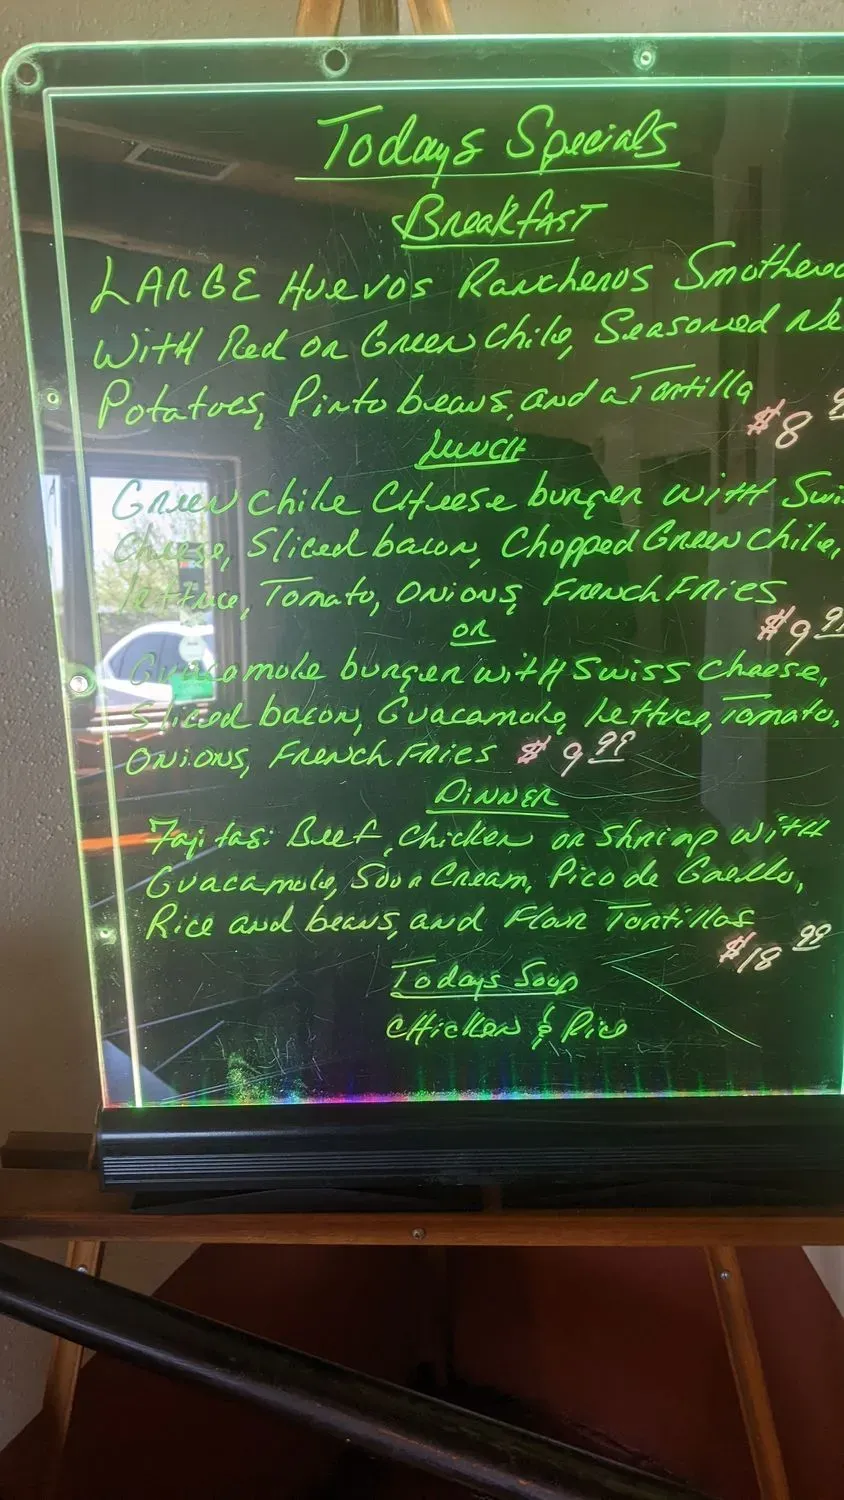 Todays Specials
Breakfast
LARGE Huevos Rancheros Smothered
With Red or Green Chile, Seasoned
Potatoes, Pinto beans, and a Tortilla
$8
LUNCH
Green Chile Cheese burger with Swi
Cheese, Sliced bacon, Chopped Green Chile,
lettuce, Tomato, Onions, French Fries
$9 99
or
Guacamole burger with Swiss Cheese,
Sliced bacon, Guacamole, lettuce, Tomato,
Onions, French Fries $9 99
DINNER
Fajitas: Beef, Chicken or Shrimp with
Guacamole, Sour Cream, Pico de Gallo,
Rice and beans, and Flour Tortillas
$18 99
Todays Soup
Chicken & Rice